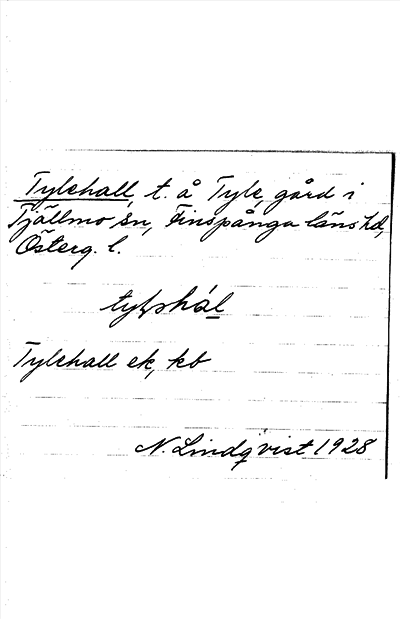 Tylehall, t. å Tyle, gård i
Tjällmo sn, Finspånga läns hd,
Österg. l.
Tylehall ek, kb
N. Lindqvist 1928